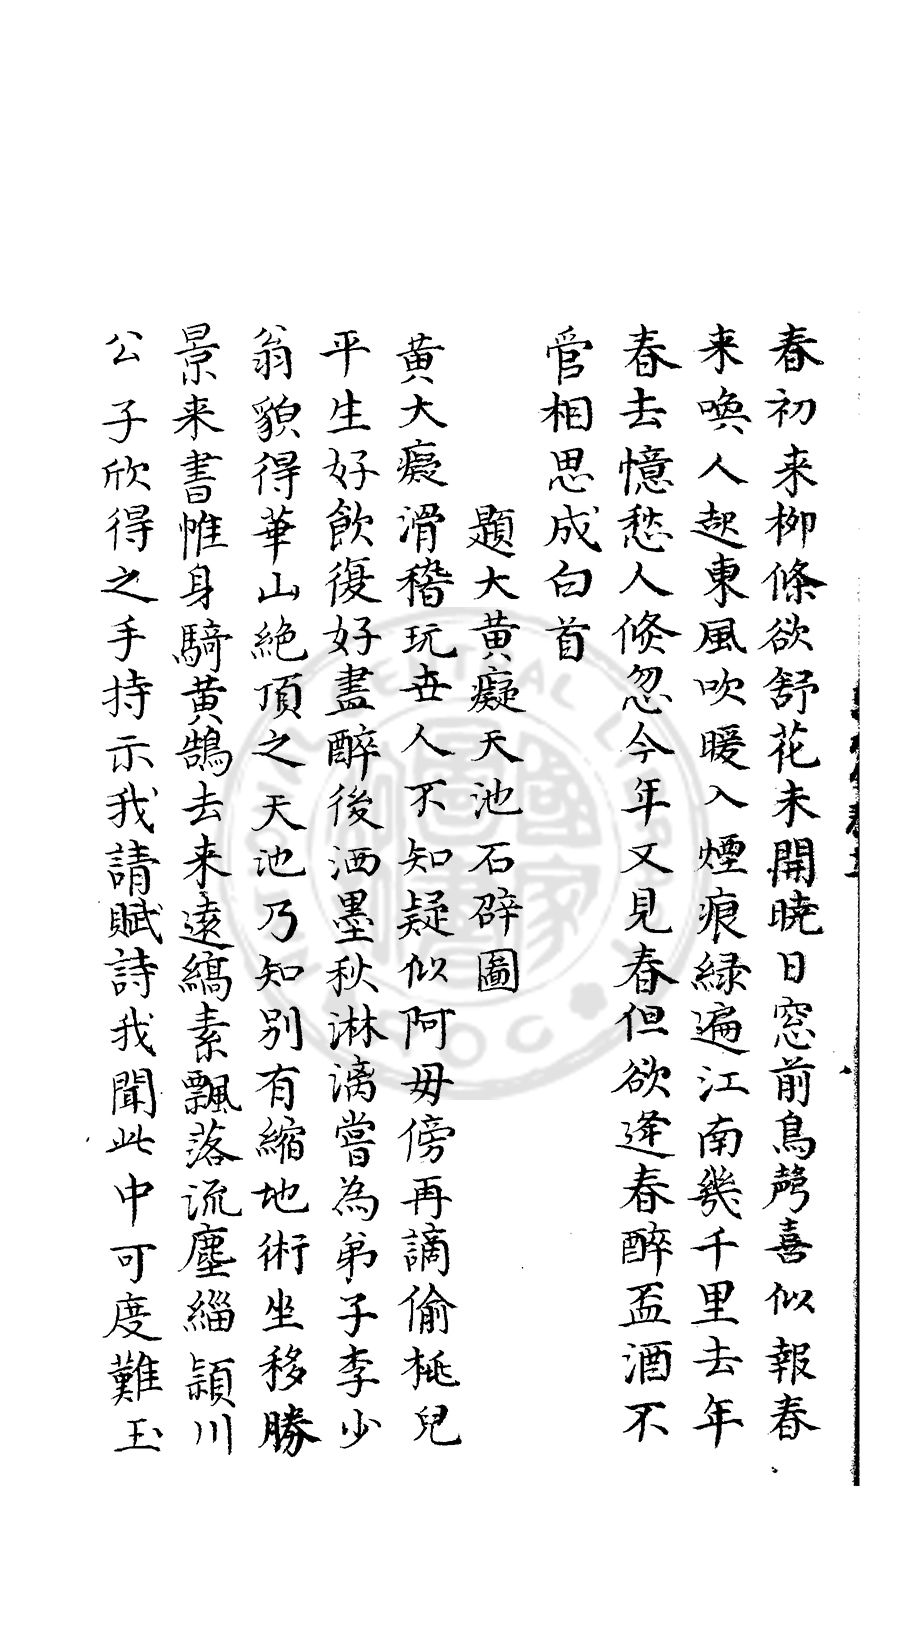 春初来柳條欲舒花未開曉日窓前鳥聲喜似報春
来喚人起東風吹暖入煙痕緑遍江南幾千里去年
春去憶愁人倐忽今年又見春但欲逢春醉盃酒不
管相思成白首
題大黄癡天池石辟圖
黄大癡滑稽玩世人不知疑似阿母傍再謫偷桃兒
平生好飲復好畫醉後洒墨秋淋漓嘗為弟子李少
翁貌得華山絶頂之天池乃知別有縮地術坐移勝
景来書帷身騎黄鵠去来遠縞素飄落流塵緇潁川
公子欣得之手持示我請賦詩我聞此中可度難玉